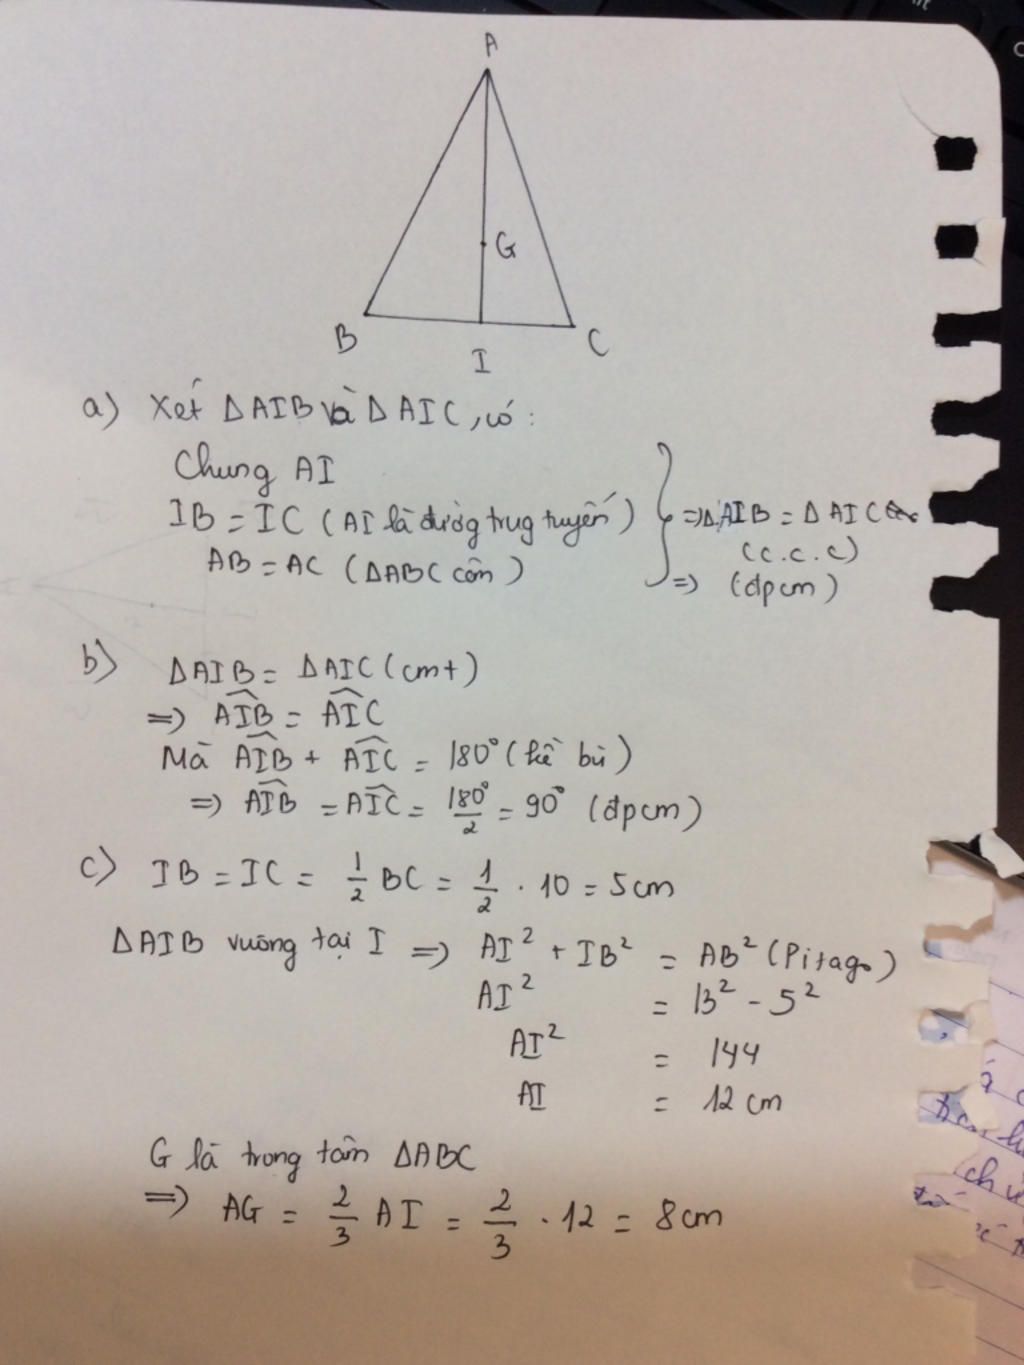 A
G
B
I
C
a) Xét ΔAIB và ΔAIC, có:
Chung AI
IB = IC (AI là đường trung tuyến) => ΔAIB = ΔAIC
AB = AC (ΔABC cân) (c.c.c)
=> (đpcm)
b) ΔAIB = ΔAIC (cmt)
=> \widehat{AIB} = \widehat{AIC}
Mà \widehat{AIB} + \widehat{AIC} = 180° (kề bù)
=> \widehat{AIB} = \widehat{AIC} = \frac{180°}{2} = 90° (đpcm)
c) IB = IC = \frac{1}{2} BC = \frac{1}{2} . 10 = 5cm
ΔAIB vuông tại I => AI² + IB² = AB² (Pitago)
AI² = 13² - 5²
AI² = 144
AI = 12 cm
G là trong tâm ΔABC
=> AG = \frac{2}{3} AI = \frac{2}{3} . 12 = 8cm